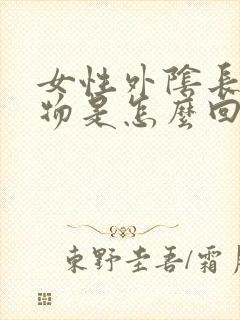 女性外陰長
物是怎麼回
東野圭吾/霜月